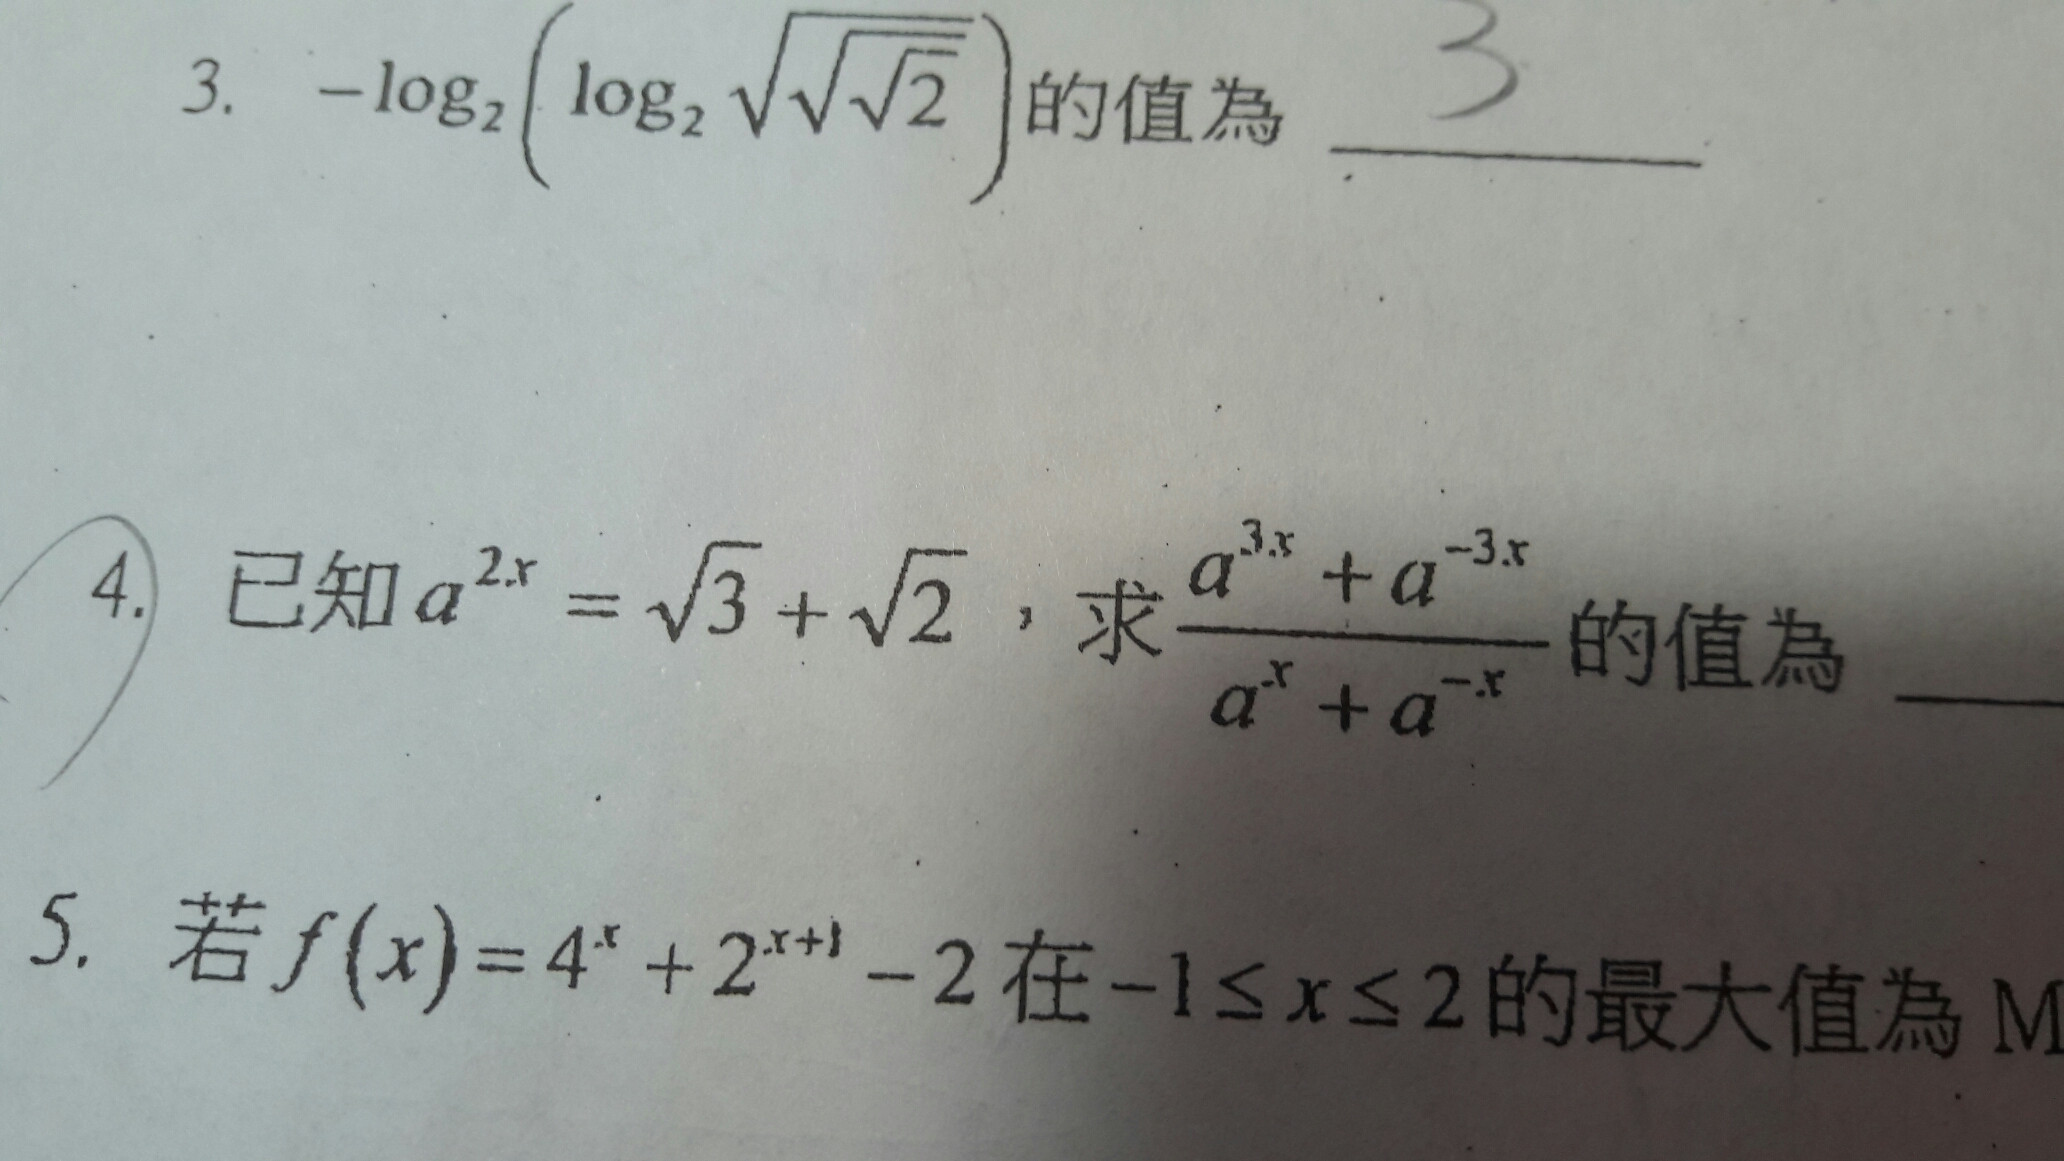 3. $-\log_2\left(\log_2\sqrt{\sqrt{\sqrt{2}}}\right)$的值為 3
4. 已知$a^{2x}=\sqrt{3}+\sqrt{2}$，求$\frac{a^{3x}+a^{-3x}}{a^{x}+a^{-x}}$的值為
5. 若$f(x)=4^{x}+2^{x+1}-2$在$-1\le x\le 2$的最大值為 M